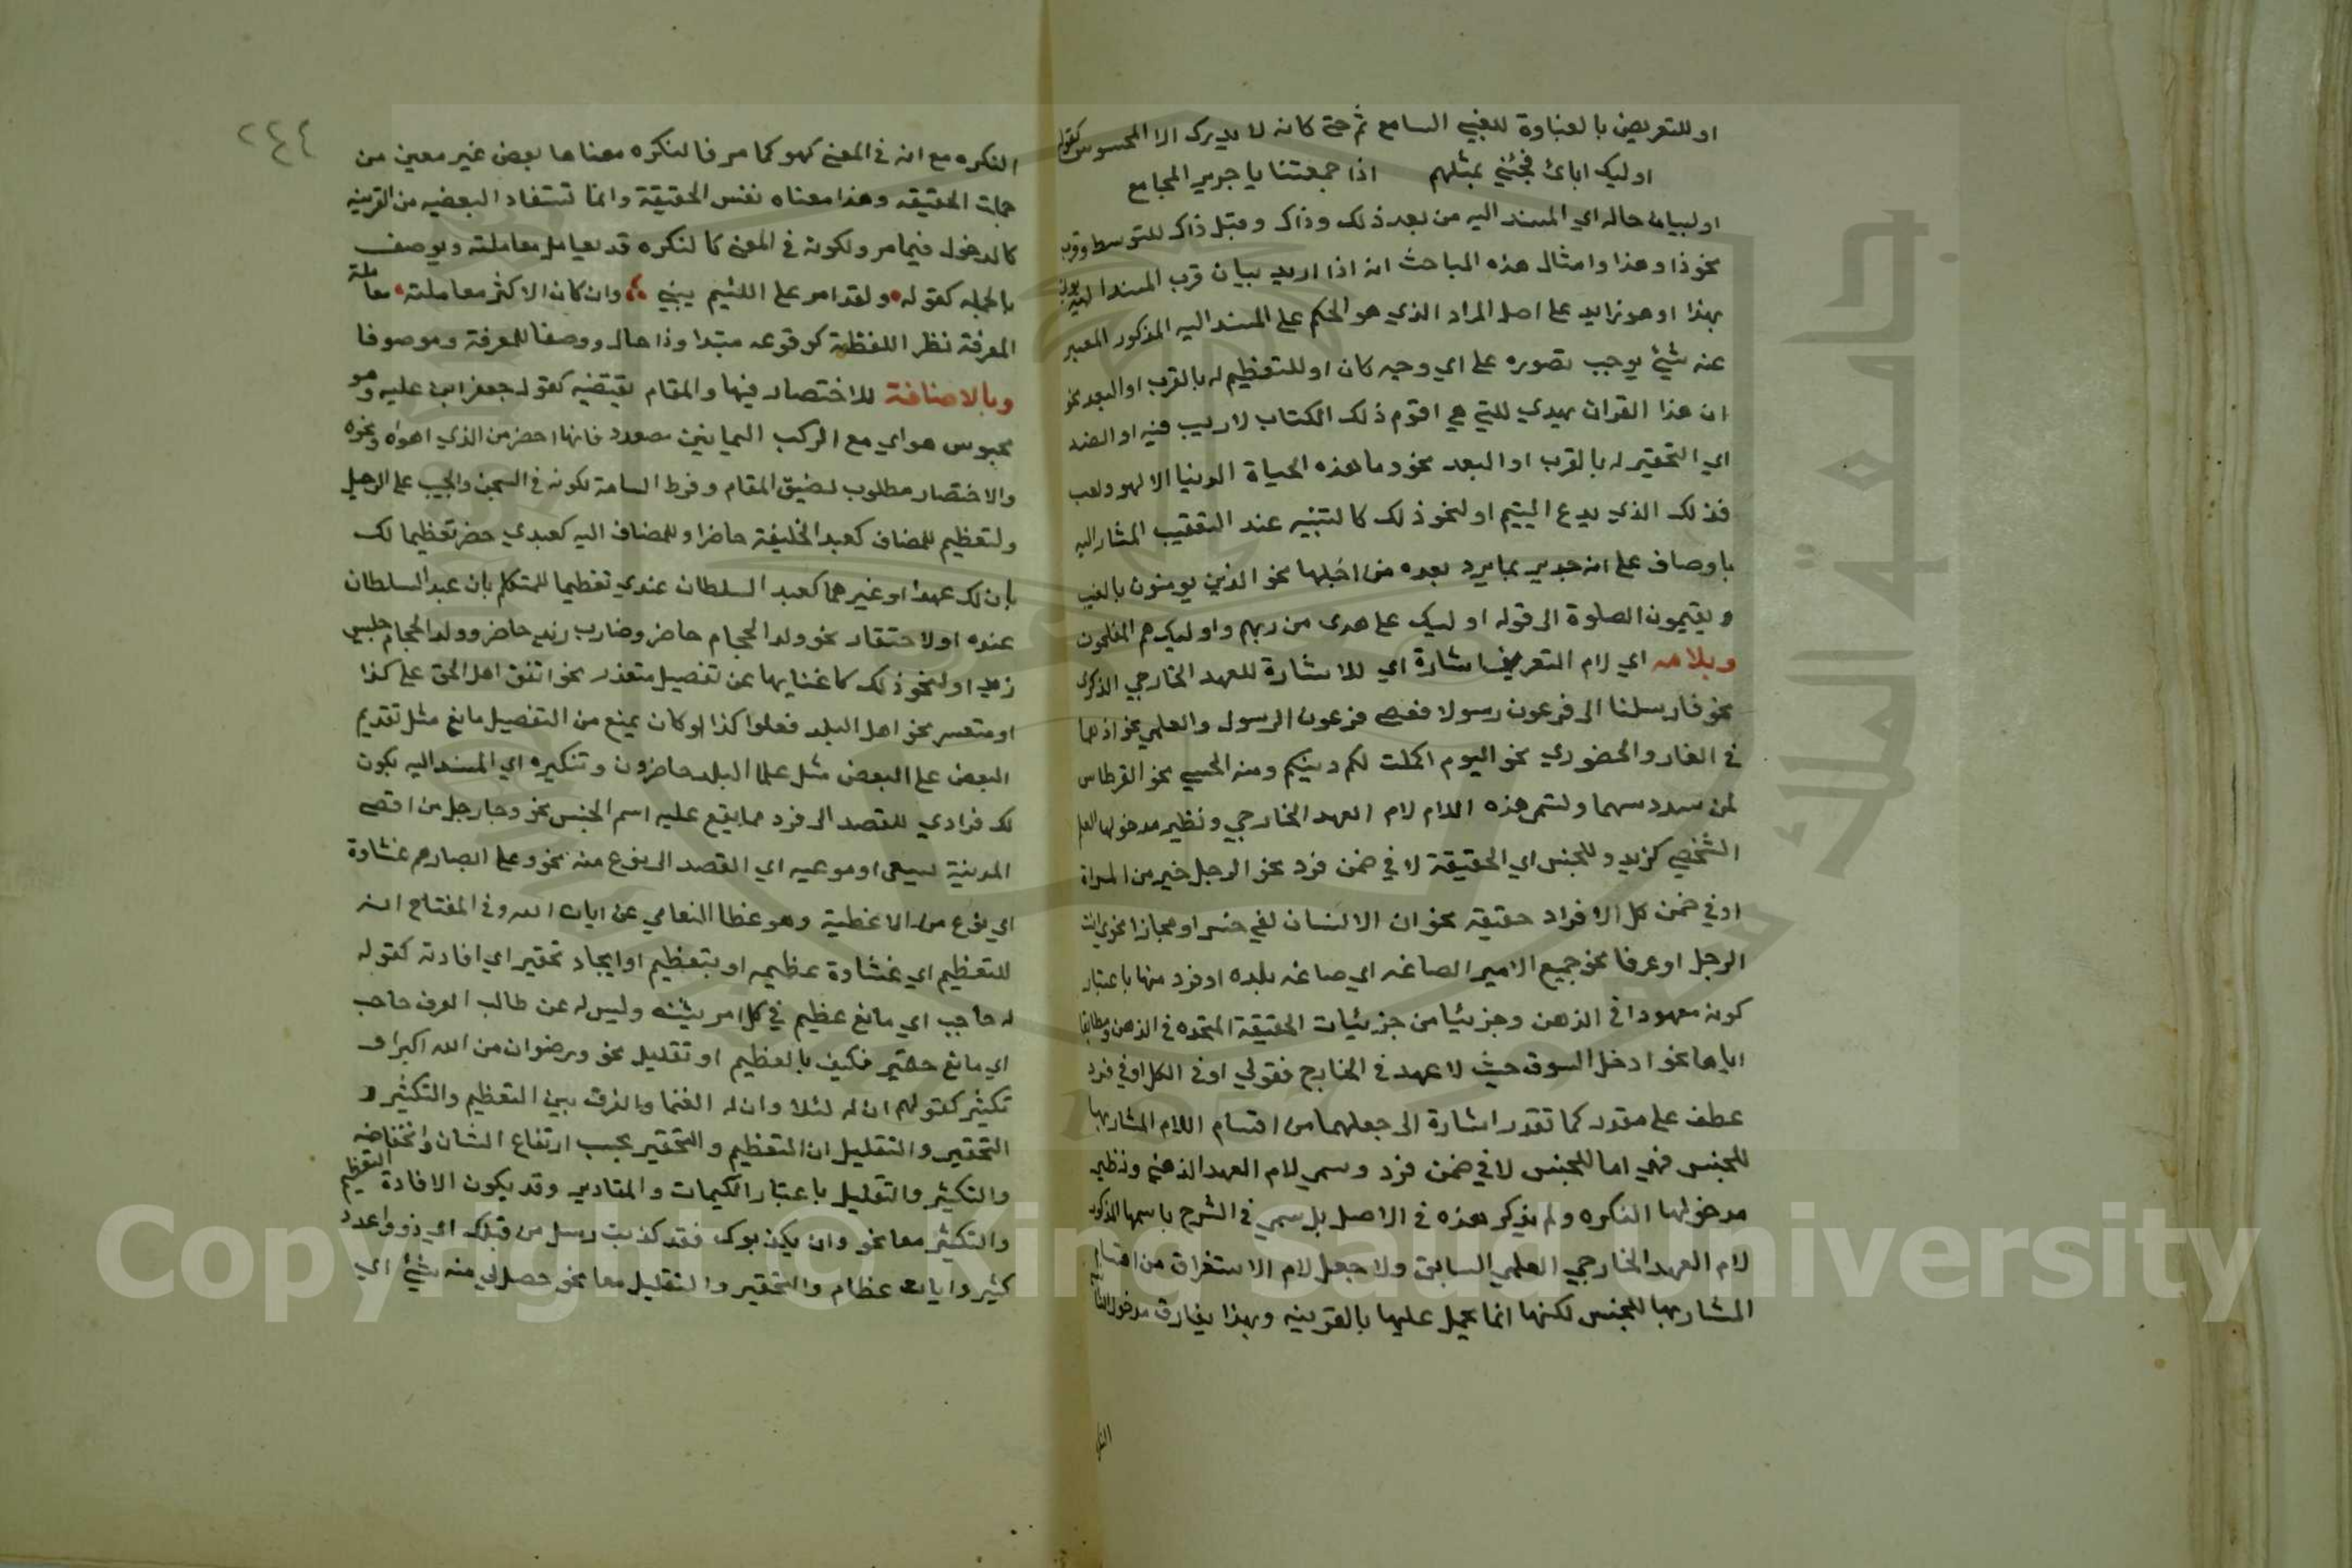 او للتعريض بالغباوة للغبي السامع ثم حتى كانه لا يدرك الا المحسوس كقوله
اوليك ابائى فجئني بمثلهم اذا جمعتنا يا جرير المجامع
او لبيان حاله اي المسند اليه من بعد ذلك وذاك وقبل ذاك للتوسط وقرب
نحو ذا وهذا وامثال هذه المباحث انه اذا اريد بيان قرب المسند اليه
بهذا او هو زايد على اصل المراد الذي هو الحكم على المسند اليه المذكور المعبر
عنه بشيئ يوجب تصوره على اي وجه كان او للتعظيم له بالقرب او البعد نحو
ان هذا القران يهدي للتي هي اقوم ذلك الكتاب لا ريب فيه او الضد
اي التحقير له بالقرب او البعد نحو وما هذه الحياة الدنيا الا لهو ولعب
فذلك الذي يدع اليتيم او لنحو ذلك كالتنبيه عند التعقيب المشار اليه
باوصاف على انه جدير بما يرد بعده من اجلها نحو الذين يومنون بالغيب
ويقيمون الصلوة الى قوله اوليك على هدى من ربهم واوليك هم المفلحون
وبلامه اي لام التعريف اشارة اي للاشارة للعهد الخارجي الذكرى
نحو فارسلنا الى فرعون رسولا فعصى فرعون الرسول والعلمي نحو اذ هما
في الغار والحضوري نحو اليوم اكملت لكم دينكم ومنه الحسي نحو القرطاس
لمن سدد سهما وتسمى هذه اللام لام العهد الخارجي ونظير مدخولها العلم
الشخصي كزيد وللجنس اي الحقيقة لا في ضمن فرد نحو الرجل خير من المراة
او في ضمن كل الافراد حقيقة نحو ان الانسان لفي خسر او مجازا نحو انت
الرجل او عرفا نحو جميع الامير الصاغه اي صاغه بلده او فرد منها باعتبار
كونه معهودا في الذهن وجزئيا من جزئيات الحقيقة المتحده في الذهن ومطابقا
اياها نحو ادخل السوق حيث لا عهد في الخارج فقولي او في الكل او في فرد
عطف على مقدر كما تقدر اشارة الى جعلهما من اقسام اللام المشار بها
للجنس فهي اما للجنس لا في ضمن فرد وسمي لام العهد الذهني ونظير
مدخولها النكره ولم يذكر هذه في الاصل بل سمي في الشرح باسمها المذكور
لام العهد الخارجي العلمي السابق ولا جعل لام الاستغراق من اقسام
المشار بها للجنس لكنها انما يحمل عليها بالقرينه وبهذا يفارق مدخول
٢٤٤
النكره مع انه في المعنى كهو كما مر فالنكره معناها بعض غير معين من
جملت الحقيقه وهذا معناه نفس الحقيقة وانما تستفاد البعضيه من القرينه
كالدخول فيما مر ولكونه في المعنى كالنكره قد يعامل معاملته ويوصف
بالجمله كقوله ولقد امر على اللئيم يسبني وان كان الاكثر معاملته معاملة
المعرفة نظرا للفظه كوقوعه مبتدا وذا حال ووصفا للمعرفة وموصوفا
وبالاضافة للاختصار فيها والمقام يقتضيه كقول جعفر ابن عليه وهو
محبوس هواي مع الركب اليمانين مصعد فانها احضر من الذي اهواه ونحوه
والاختصار مطلوب لضيق المقام وفرط السامة لكونه في السجن والحبيب على الرحيل
ولتعظيم للمضاف كعبد الخليفة حاضر او للمضاف اليه كعبدي حضر تعظيما لك
بان لك عبدا او غيرهما كعبد السلطان عندي تعظيما للمتكلم بان عبد السلطان
عنده او لاحتقار نحو ولد الحجام حاضر وضارب زيد حاضر وولد الحجام جليس
زيد او لنحو ذلك كاغنايها عن تفصيل متعذر نحو اتفق اهل الحق على كذا
او متعسر نحو اهل البلد فعلوا كذا او كان يمنع من التفصيل مانع مثل تقديم
البعض على البعض مثل علما البلد حاضرون وتنكيره اي المسند اليه يكون
لك فرادي للقصد الى فرد مما يقع عليه اسم الجنس نحو وجا رجل من اقصى
المدينة يسعى او موعيه اي القصد الى نوع منه نحو وعلى ابصارهم غشاوة
اي نوع من الاغطية وهو غطا التعامي عن ايات الله وفي المفتاح انه
للتعظيم اي غشاوة عظيمه او بتعظيم او ايجاد تحقير اي افادته كقوله
له حاجب اي مانع عظيم في كل امر يشينه وليس له عن طالب العرف حاجب
اي مانع حقير فكيف بالعظيم او تقليل نحو ورضوان من الله اكبر او
تكثير كقولهم ان له لابلا وان له لغنما والفرق بين التعظيم والتكثير و
التحقير والتقليل ان التعظيم والتحقير بحسب ارتفاع الشان وانخفاضه
والتكثير والتقليل باعتبار الكيمات والمقادير وقد يكون الافادة التعظيم
والتكثير معا نحو وان يكذبوك فقد كذبت رسل من قبلك اي ذووا عدد
كثير وايات عظام والتحقير والتقليل معا نحو حصل لي منه شيئ اي
Copyright © King Saud University
جامعة الملك سعود
1957